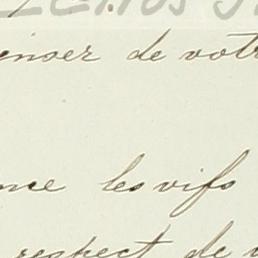 enser de votr
nce les vifs
respect de v